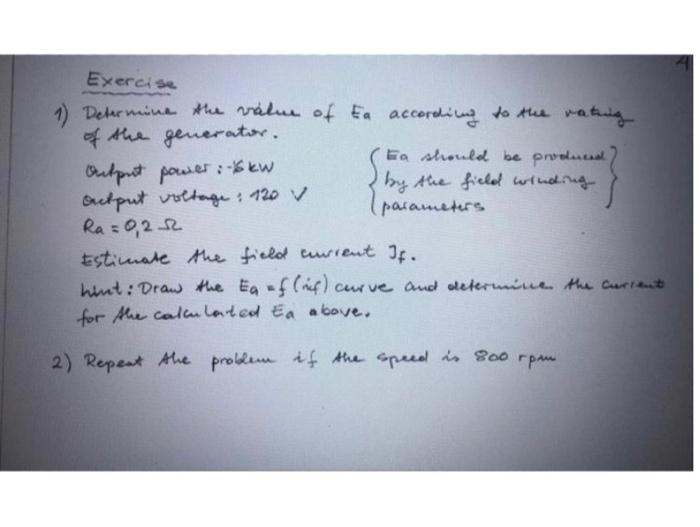 Exercise
1) Determine the value of Ea according to the rating
of the generator.
Output power: -6 kW
Output voltage: 120 V
Ra = 0,2 Ω
{Ea should be produced
by the field winding
parameters}
Estimate the field current If.
hint: Draw the Ea = f(if) curve and determine the current
for the calculated Ea above.
2) Repeat the problem if the speed is 800 rpm